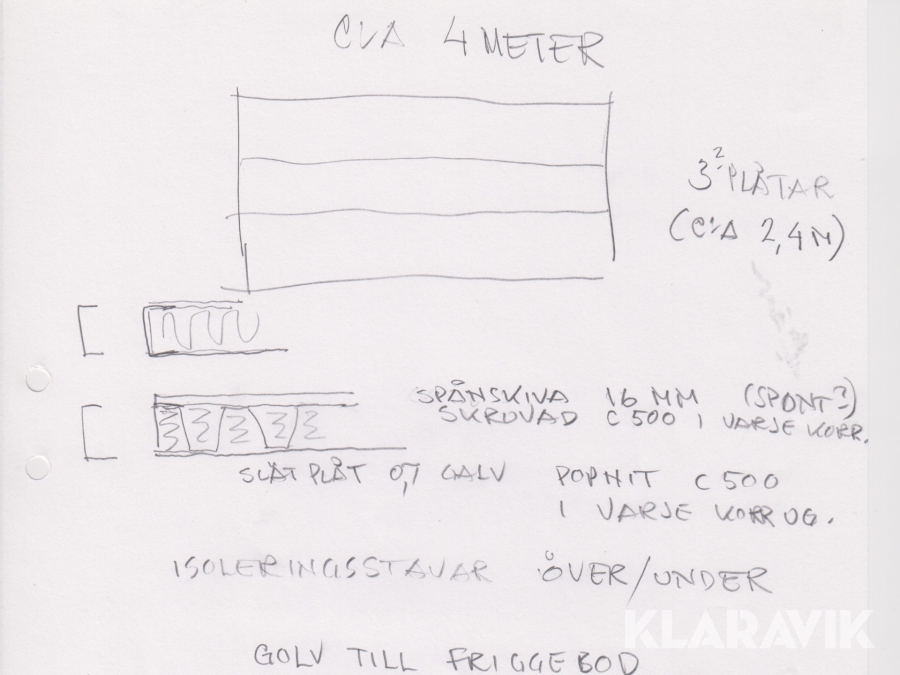 CVA 4 METER
3² PLÅTAR
(C:A 2,4 M)
SPÅNSKIVA 16 MM (SPONT?)
SKRUVAD C 500 I VARJE KORR.
SLÄT PLÅT 0,7 GALV POPNIT C 500
I VARJE KORRUG.
ISOLERINGSSTAVAR ÖVER/UNDER
KLARAVIK
GOLV TILL FRIGGEBOD